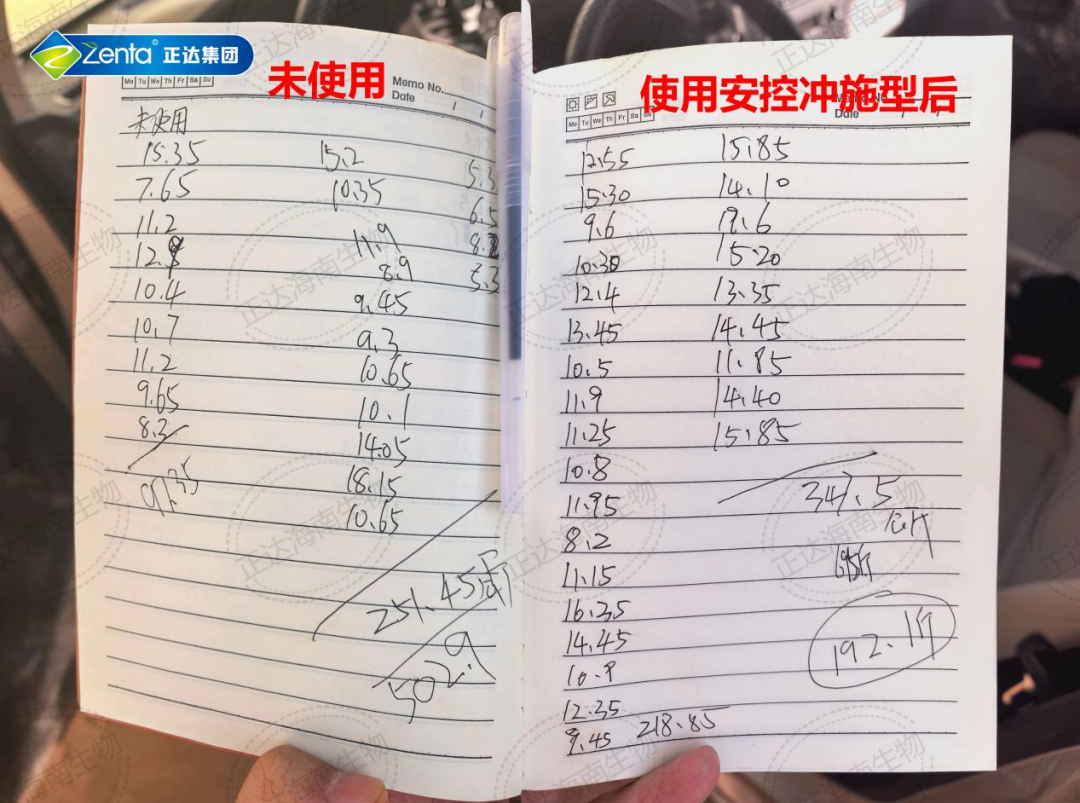 Zenta® 正达集团
未使用
使用安控冲施型后
Mo Tu We Th Fr Sa Su
Memo No.
Date / /
未使用
15.35 15.2 5.3
7.65 10.35 6.5
11.2 11.9
8.9
10.4 9.45
10.7 9.3
11.2 10.65
9.65 10.1
8.3 14.05
18.15
10.65
251.45斤
502.9
Mo Tu We Th Fr Sa Su
Memo No.
Date / /
12.55 15.85
15.30 14.10
9.6 19.6
10.30 15.20
12.4 13.35
13.45 14.45
10.5 11.85
11.9 14.40
11.25 15.85
10.8
11.95 347.5
8.2
11.15
16.35
14.45 192.1斤
12.35
9.45 218.85
正达海南生物